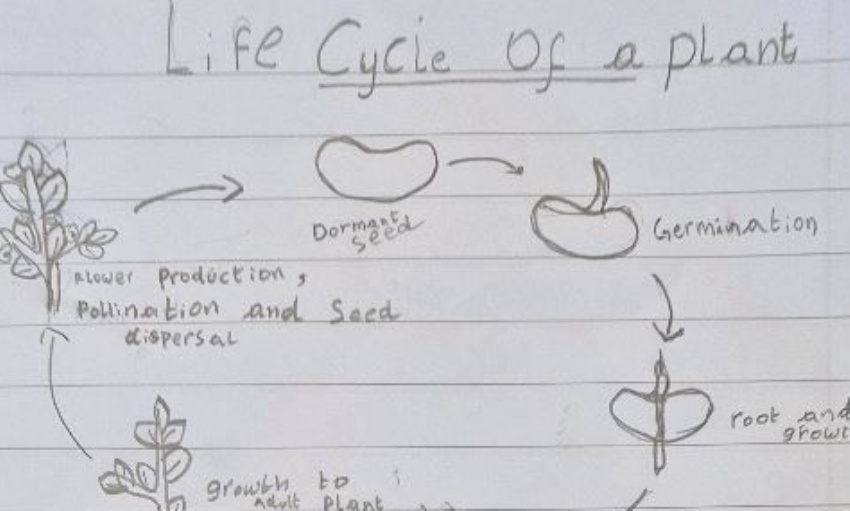 Life Cycle Of a plant
Dormant
seed
Germination
flower production,
Pollination and Seed
dispersal
root and
growth to
Adult Plant